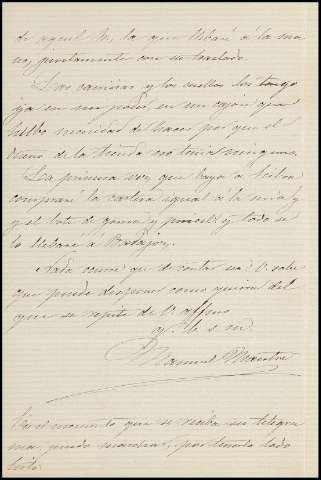 de aquel Sr., la que llevaré á la ma-
no, juntamente con su traslado.
Las camisas y los cuellos los tengo
ya en mi poder, en un cajon que
hubo necesidad de hacer por que el
dueño de la tienda no tenia ninguno.
La primera vez que vaya a
compraré la cartera igual á la mia y
y el bote de goma y pincel: y todo se
lo llevaré a Badajoz.
Nada ocurre que de contar sea: V. sabe
que puede disponer como quiera del
que se repite de V. affmo
q. b. s. m.
Manuel
En el momento que se reciba su telegra-
ma, puedo marchar, por tenerlo todo
listo.